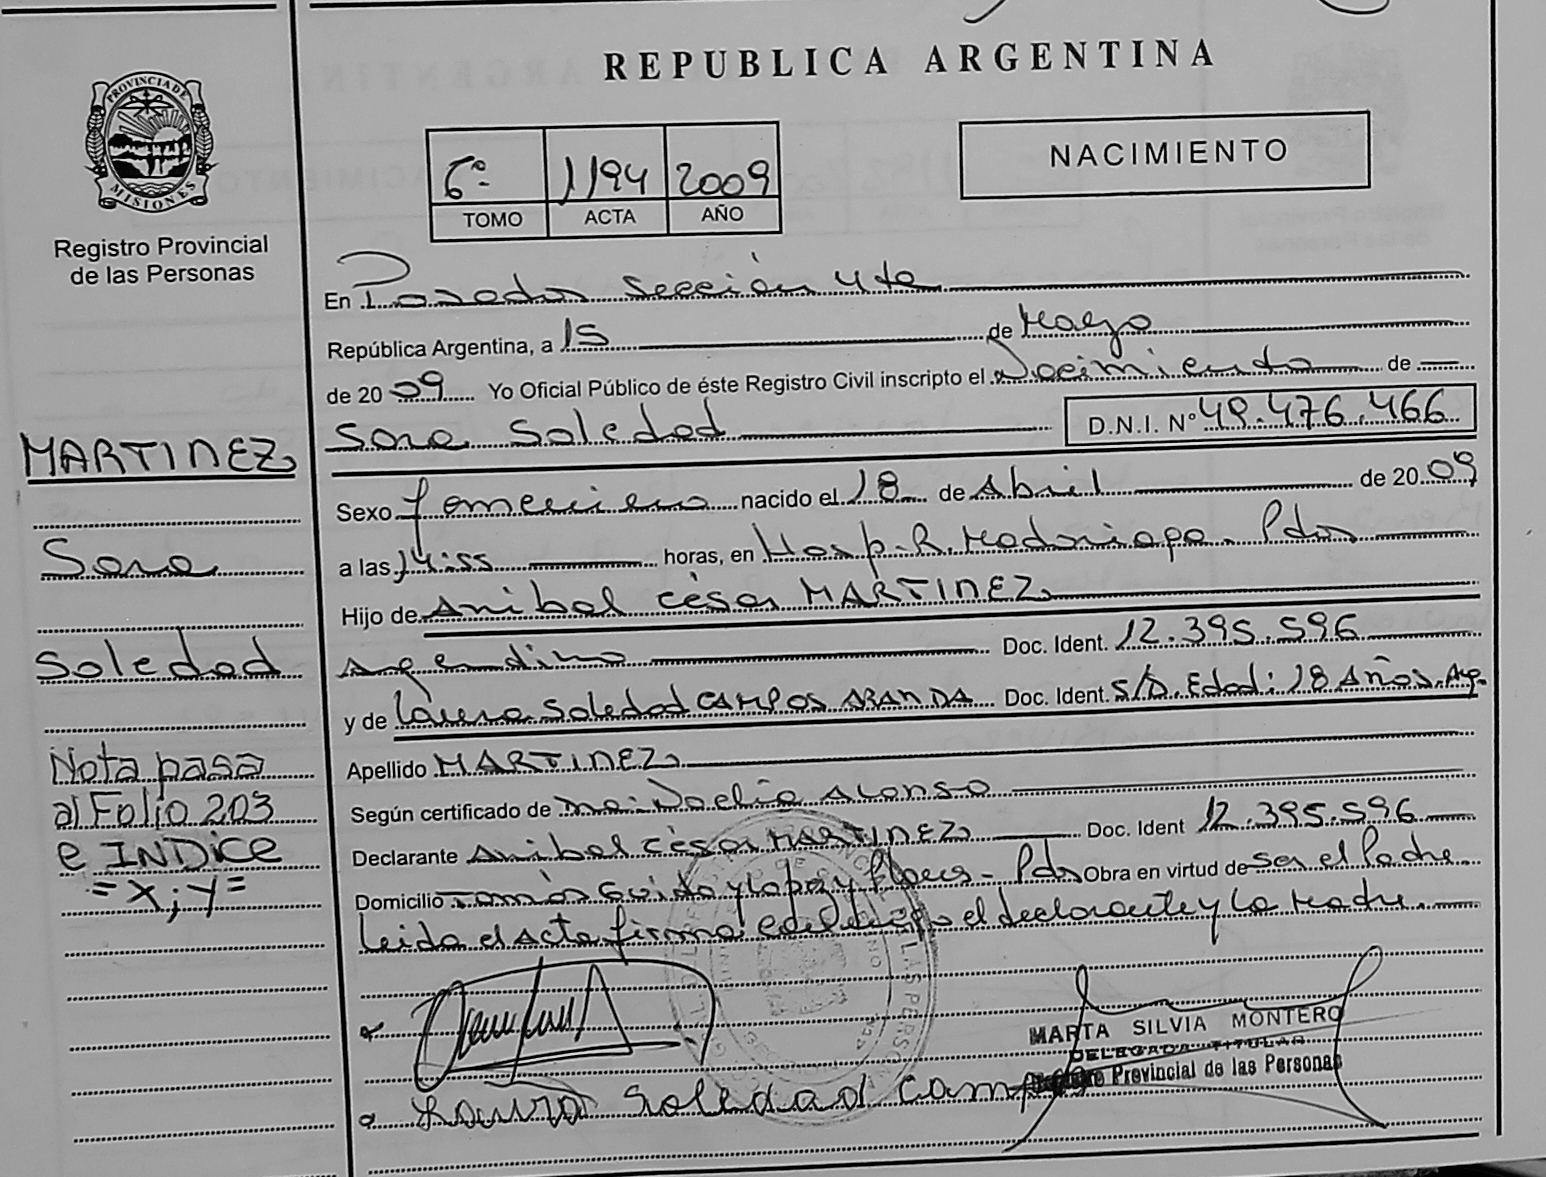 REPUBLICA ARGENTINA
PROVINCIA DE
MISIONES
Registro Provincial
de las Personas
6º 1194 2009
TOMO ACTA AÑO
NACIMIENTO
En Posadas Sección 4ta
República Argentina, a 15 de Mayo
de 2009 Yo Oficial Público de éste Registro Civil inscripto el Nacimiento de
Sara Soledad D.N.I. Nº 49.476.466
Sexo femenino nacido el 18 de Abril de 2009
a las 14:55 horas, en Hosp. R. Madariaga. Pdas
Hijo de Anibal César MARTINEZ
Argentino Doc. Ident. 12.395.596
y de Laura Soledad CAMPOS ARANDA Doc. Ident S/D. Edad: 18 Años. Ag.
Apellido MARTINEZ
Según certificado de Noelia Alonso
Declarante Anibal César MARTINEZ Doc. Ident 12.395.596
Domicilio Tomás Guido y López y Planes - Pdas Obra en virtud de ser el Padre
Leida el Acta firma el declarante y la Madre
MARTA SILVIA MONTERO
DELEGADA TITULAR
Provincial de las Personas
Laura Soledad Campos
MARTINEZ
Sara
Soledad
Nota pasa
al Folio 203
e INDICE
=X;Y=